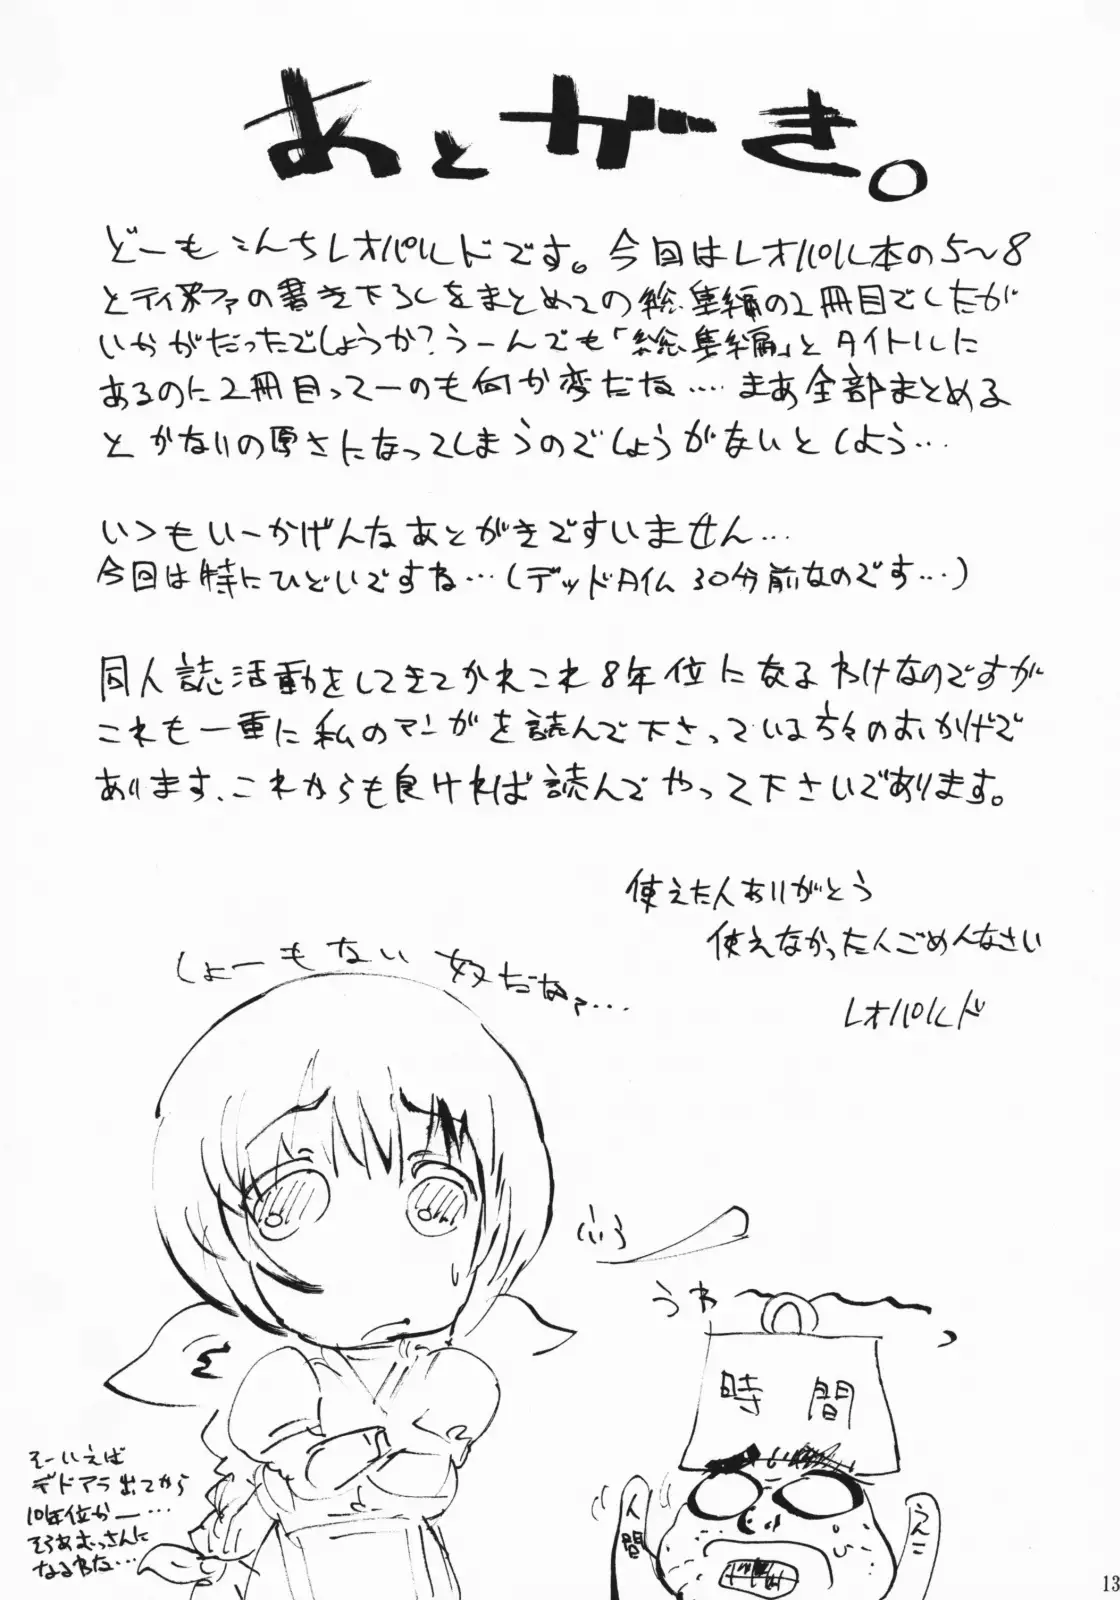 あとがき。
どーもこんちレオパルドです。今回はレオパル本の5〜8
とティファの書き下ろしをまとめての総集編の2冊目でしたが
いかがだったでしょうか?うーんでも「総集編」とタイトルに
あるのに2冊目ってーのも何か変だな....まあ全部まとめる
とかないりの厚さになってしまうのでしょうがないとしよう...
いつもいーかげんなあとがきですいません...
今回は特にひどいですね...(デッドタイム30分前なのです...)
同人誌活動をしてきてかれこれ8年位になるわけなのですが
これも一重に私のマンガを読んで下さっている方々のおかげで
あります、これからも良ければ読んでやって下さいであります。
使えた人ありがとう
使えなかった人ごめんなさい
レオパルド
しょーもない奴だなァ...
ふぅ
うわ
時間
人間
そーいえば
デドアラ出てから
10年位かー...
そろあむっさんに
なるわな...
13